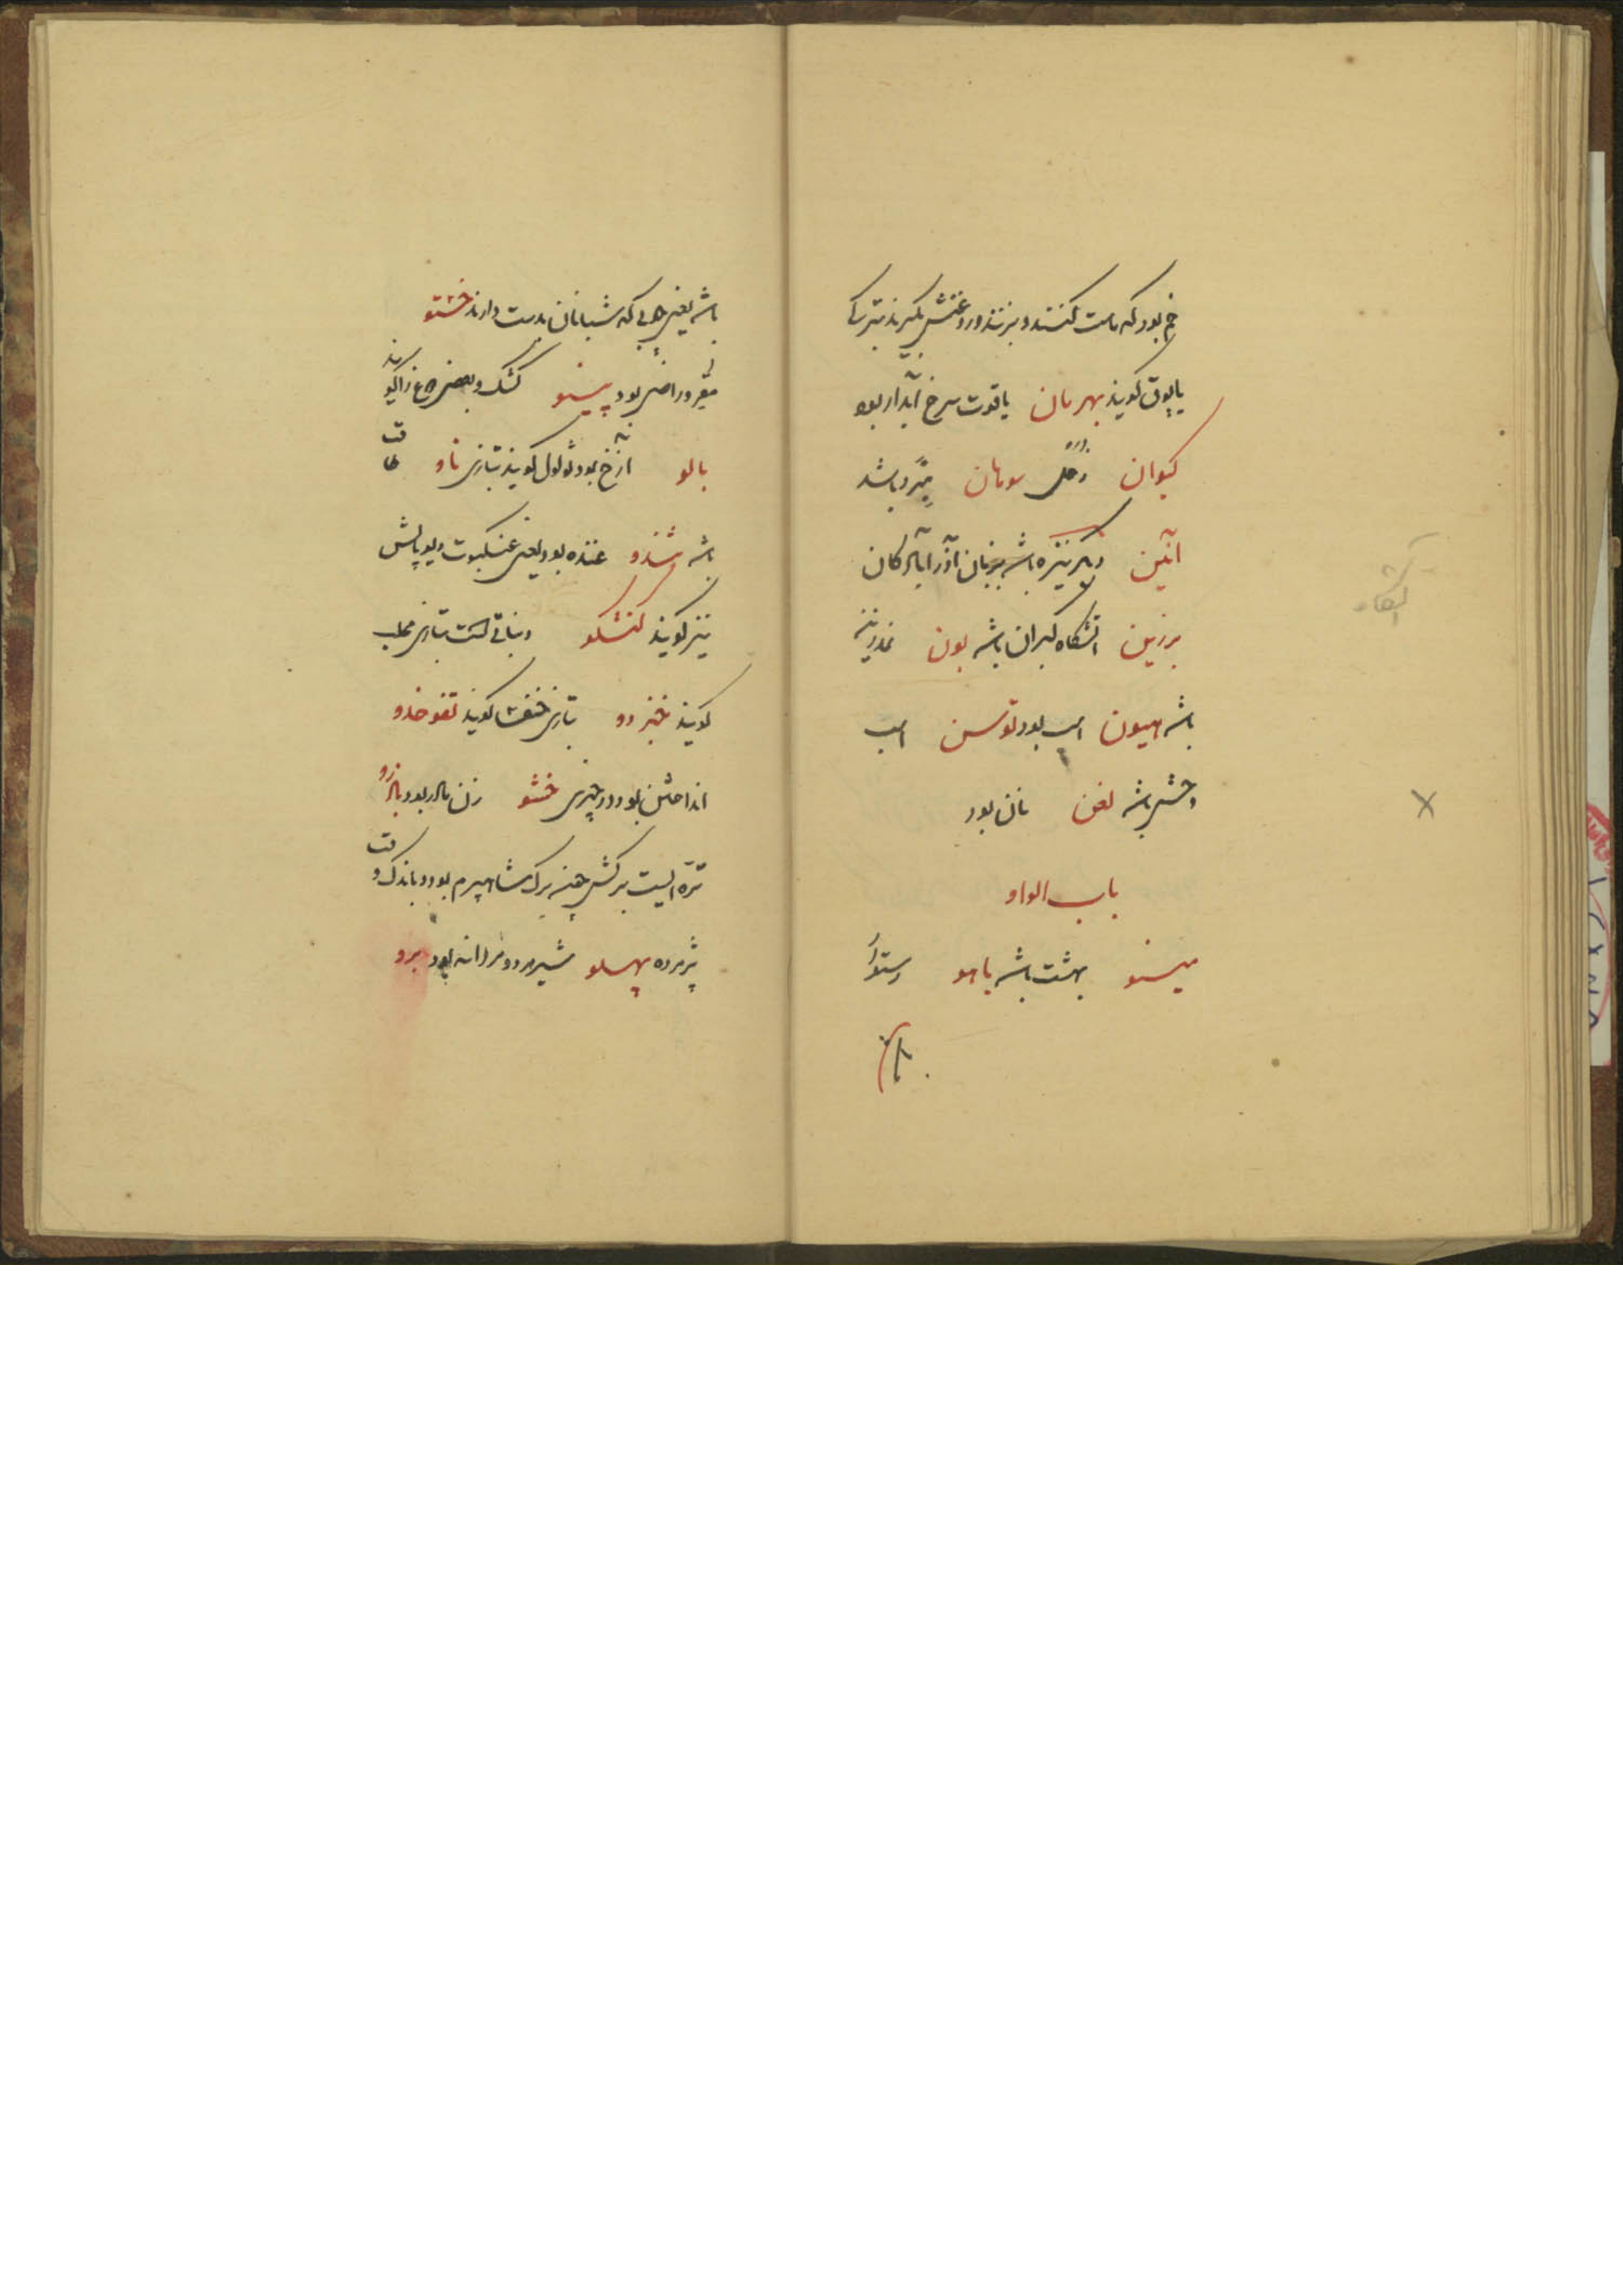 خم بود که ماست کنند و بزنند و روغنش بگیرند بترکی
یایوق گویند بهرمان یاقوت سرخ آبدار بود
کیوان زحل سوهان مبرد باشد
آیین نیزه باشد بزبان آذرآبادگان
برزین آتشگاه گبران باشد بون
باشد هیون اسب بود توسن اسب
وحشی باشد لغن نان بود
باب الواو
مینو بهشت باشد باهو دستوار
باشد یعنی چوبی که شبانان بدست دارند خستو
مقر و راضی بود پینو کشک و بعضی گویند
بالو ازخ بود ثولول گویند بتازی ناو
باشد شندو غنده بود یعنی عنکبوت و دیوپایش
نیز گویند کنشکو نباتی است بتازی محلب
گویند خبزدو بتازی خنفسا گویند تفو خدو
انداختن بود در چیزی خشو زن مادر بود بادرو
تره ایست برگش چون برگ شاهسپرم بود و باندک وقت
پژمرده پهلو شیرمرد و مردانه بود برو